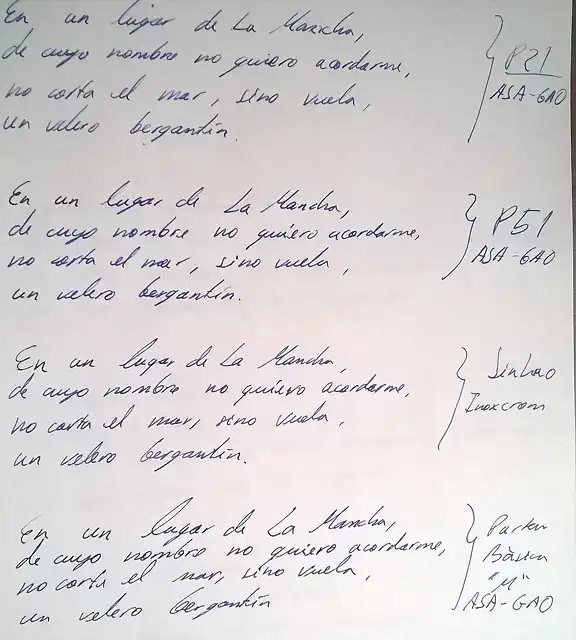 En un lugar de La Mancha,
de cuyo nombre no quiero acordarme,
no corta el mar, sino vuela,
un velero bergantín.
P21
ASA-GAO
En un lugar de La Mancha,
de cuyo nombre no quiero acordarme,
no corta el mar, sino vuela,
un velero bergantín.
P51
ASA-GAO
En un lugar de La Mancha,
de cuyo nombre no quiero acordarme,
no corta el mar, sino vuela,
un velero bergantín.
Jinhao
Inoxcrom
En un lugar de La Mancha,
de cuyo nombre no quiero acordarme,
no corta el mar, sino vuela,
un velero bergantín
Parker
Básica
"M"
ASA-GAO